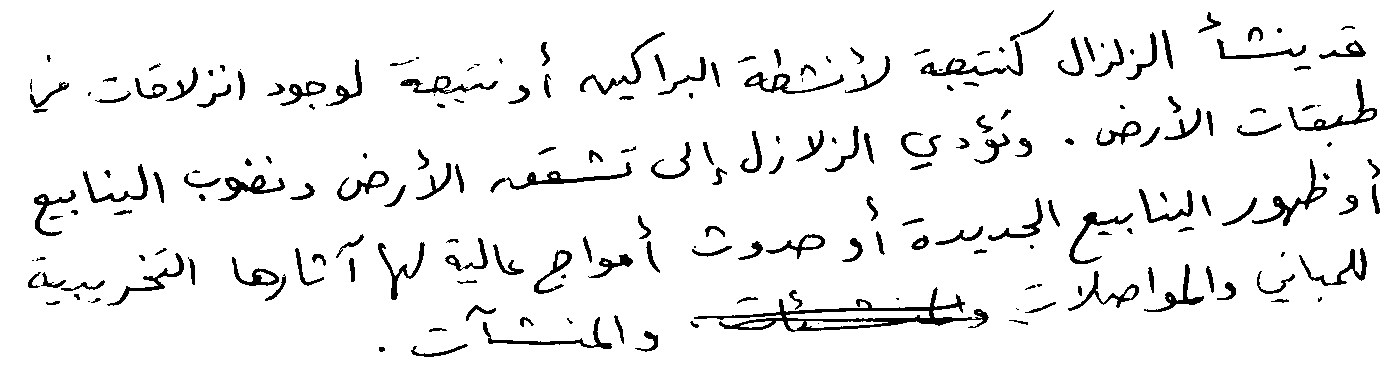 قد ينشأ الزلزال كنتيجة لأنشطة البراكين أو نتيجة لوجود انزلاقات في
طبقات الأرض . وتؤدي الزلازل إلى تشقق الأرض ونضوب الينابيع
أو ظهور الينابيع الجديدة أو حدوث أمواج عالية لها آثارها التخريبية
للمباني والمواصلات والمنشآت .